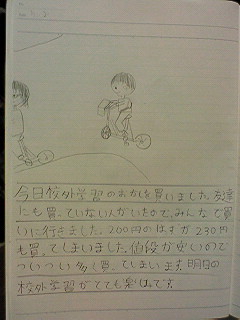 今日校外学習のおかしを買いました。友達
にも買っていない人がいたので、みんなで買
いに行きました。200円のはずが230円
も買ってしまいました。値段が安いので
ついつい多く買ってしまいます。明日の
校外学習がとても楽しみです。